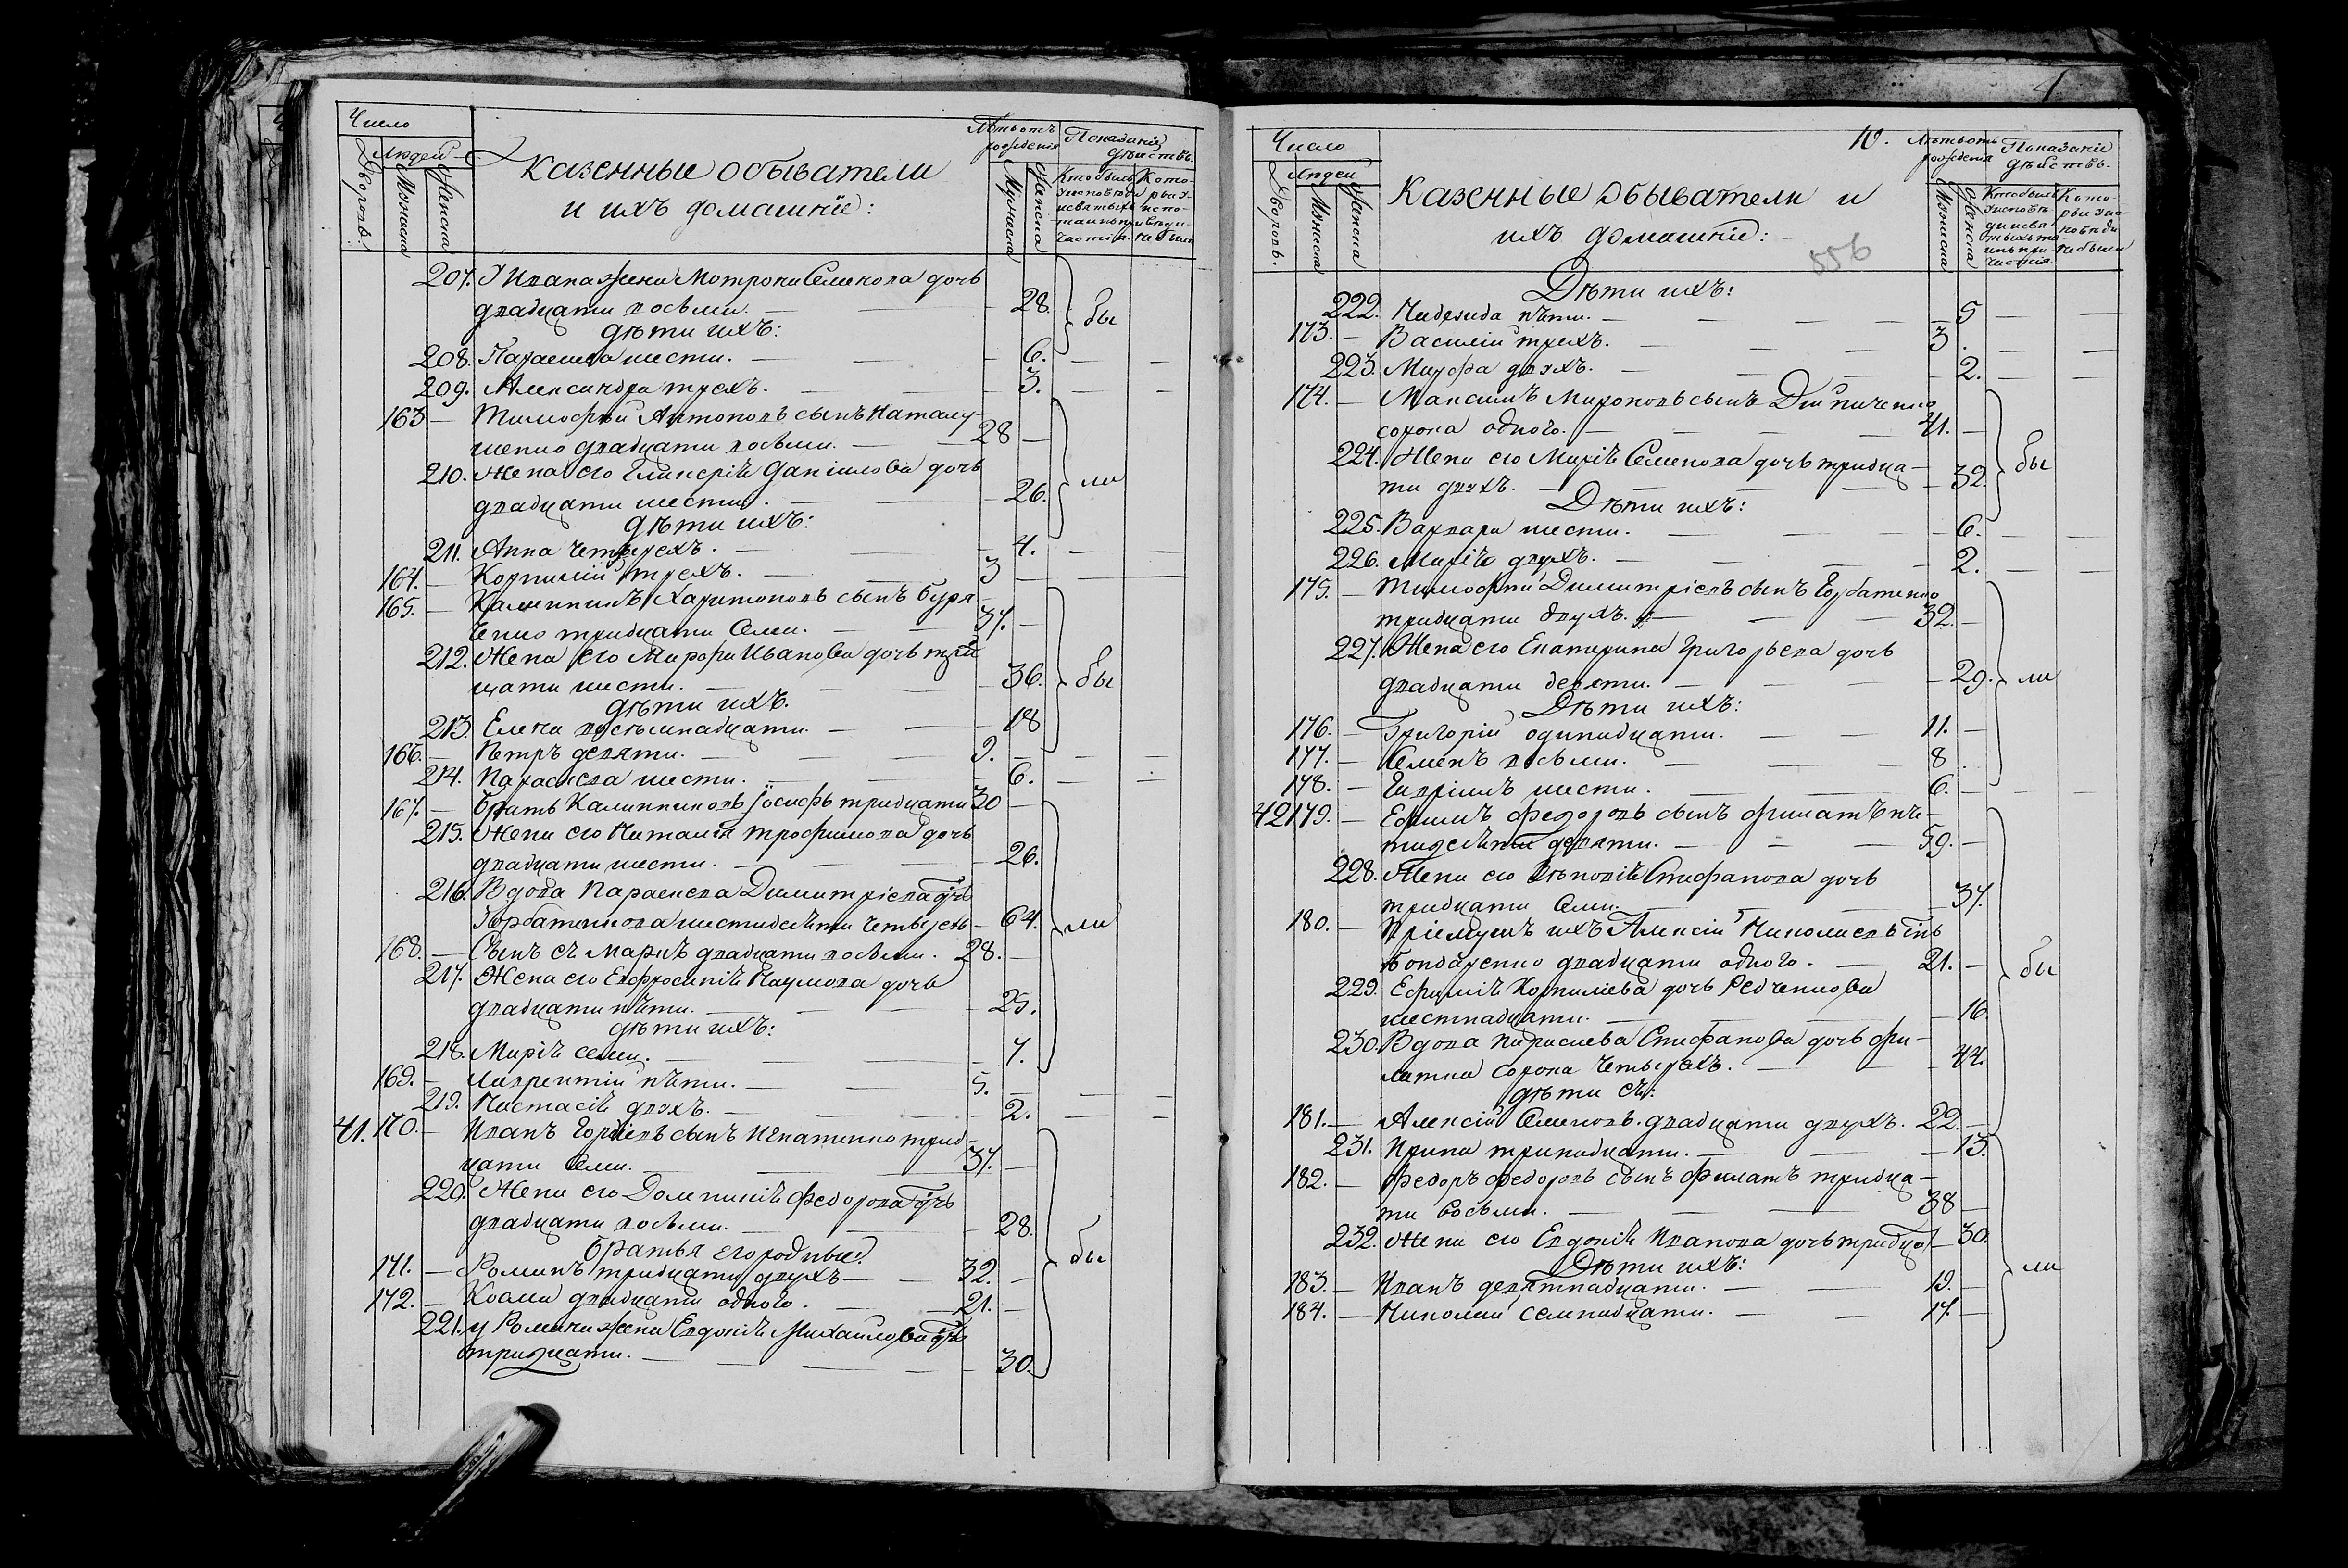 Число
Людей
Дворовъ.
Мужеска
Женска
Казенные обыватели
и ихъ домашніе:
Лѣтъ отъ рожденія
Мужеска
Женска
Показаніе дѣйствъ.
207. У Ивана жена Мотрона Семенова дочь
двадцати восьми. — 28. бы
дѣти ихъ:
208. Параскева шести. — 6. —
209. Александра трехъ. — 3. —
163 — Тимофей Антоновъ сынъ
двадцати восьми. — 28 —
210. Жена его Гликерія Даніилова дочь
двадцати шести. — 26. ли
дѣти ихъ:
211. Анна четырехъ. — 4. —
164. — Корнилій трехъ. — 3 —
165. — Калинникъ Харитоновъ сынъ
тридцати семи. — 37. —
212. Жена его Марфа Иванова дочь трид
цати шести. — 36. бы
дѣти ихъ.
213. Елена восемнадцати. — 18
166. — Петръ девяти. — 9. —
214. Параскева шести. — 6. —
167. — Братъ Калинниковъ Іосифъ тридцати 30 —
215. Жена его Наталія Трофимова дочь
двадцати шести. — 26.
216. Вдова Параскева Димитріева дчь
Горбатенкова шестидесяти четырехъ — 64. ли
168. — Сынъ ея Маркъ двадцати восьми. 28. —
217. Жена его Евфросинія Наумова дочь
двадцати пяти. — 25.
дѣти ихъ:
218. Марія семи. — 7.
169. — Лаврентій пяти. — 5. —
219. Настасія двухъ. — 2. —
41. 170. — Иванъ Гордіевъ сынъ Игнатенко трид-
цати семи. — 37. —
220. Жена его Домникія Федорова дчь
двадцати восьми. — 28.
братья его родные:
171. — Романъ тридцати двухъ — 32. — бы
172. — Косма двадцати одного. — 21. —
221. у Романа жена Евдокія Михайлова дчь
тридцати. — 30.
10.
Число
Людей
Дворовъ.
Мужеска
Женска
Казенные обыватели и
ихъ домашніе:
556
Лѣтъ отъ рожденія
Мужеска
Женска
Показаніе дѣйствъ.
Дѣти ихъ:
222. Надежда пяти. — 5 —
173. — Василій трехъ. — 3. —
223. Марфа двухъ. — 2. —
174. — Максимъ Мироновъ сынъ
сорока одного. — 41. —
224. Жена его Марія Семенова дочь тридца-
ти двухъ. — 32. бы
Дѣти ихъ:
225. Варвара шести. — 6. —
226. Марія двухъ. — 2. —
175. — Тимофей Димитріевъ сынъ Горбатенко
тридцати двухъ. — 32. —
227. Жена его Екатерина Григорьева дочь
двадцати девяти. — 29. ли
Дѣти ихъ:
176. — Григорій одинадцати. — 11. —
177. — Семенъ восьми. — 8.
178. — Гавріилъ шести. — 6. —
42 179. — Ефимъ Федоровъ сынъ Филатъ пя-
тидесяти девяти. — 59. —
228. Жена его Стефанова дочь
тридцати семи. — 37.
180. — Пріемышъ ихъ Алексій Николаевъ снъ
Бондаренко двадцати одного. — 21. — бы
229. Ефимія Корниліева дочь Редченкова
шестнадцати. — 16.
230. Вдова Параскева Стефанова дочь Фи-
латка сорока четырехъ. — 44.
дѣти ея:
181. — Алексій Семеновъ двадцати двухъ. 22. —
231. Ирина тринадцати. — 13.
182. — Федоръ Федоровъ сынъ Филатъ тридца-
ти восьми. — 38 —
232. Жена его Евдокія Иванова дочь тридца — 30.
Дѣти ихъ: ли
183. — Иванъ девятнадцати. — 19. —
184. — Николай семнадцати. — 17. —